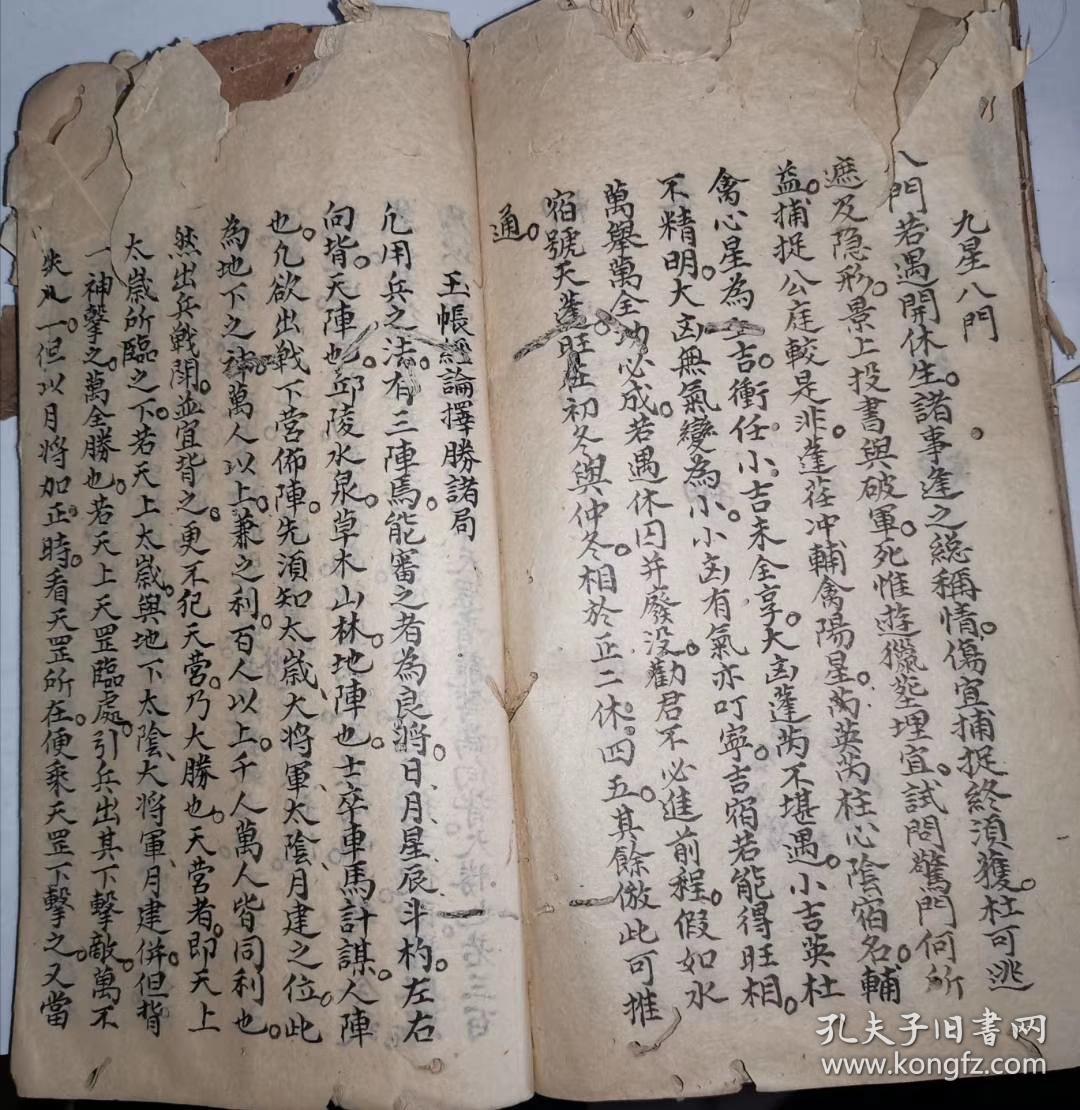 九星八門
八門若遇開休生。諸事逢之総稱情。傷宜捕捉終須獲。杜可逃
遮及隐形。景上投書與破軍。死惟遊獵塟埋宜。試問驚門何所
益。捕捉公庭較是非。蓬任冲輔禽陽星。芮英芮柱心陰宿名。輔
禽心星為上吉。衝任小吉未全享。大凶蓬芮不堪遇。小吉英杜
不精明。大凶無氣變為小。小凶有氣亦叮寧。吉宿若能得旺相。
萬舉萬全功必成。若遇休囚并廢没。勸君不必進前程。假如水
宿號天蓬。旺在初冬與仲冬。相於正二休。四五。其餘倣此可推
通。
玉帳經論擇勝諸局
凢用兵之法。有三陣焉。能審之者為良将。日月星辰斗杓。左右
向背。天陣也。邱陵水泉。草木山林。地陣也。士卒車馬計謀。人陣
也。凢欲出戰下营佈陣。先須知太嵗、大将軍、太陰、月建之位。此
為地下之神。萬人以上。兼之利。百人以上。千人萬人皆同利也。
然出兵戰閗。並宜背之。更不犯天营。乃大勝也。天营者。即天上
太嵗所臨之下。若天上太嵗。與地下太陰、大将軍、月建併。但背
一神擊之。萬全勝也。若天上天罡臨處。引兵出其下擊敵。萬不
失一。但以月将加正時。看天罡所在。便乘天罡下擊之。又當
孔夫子旧書网
www.kongfz.com